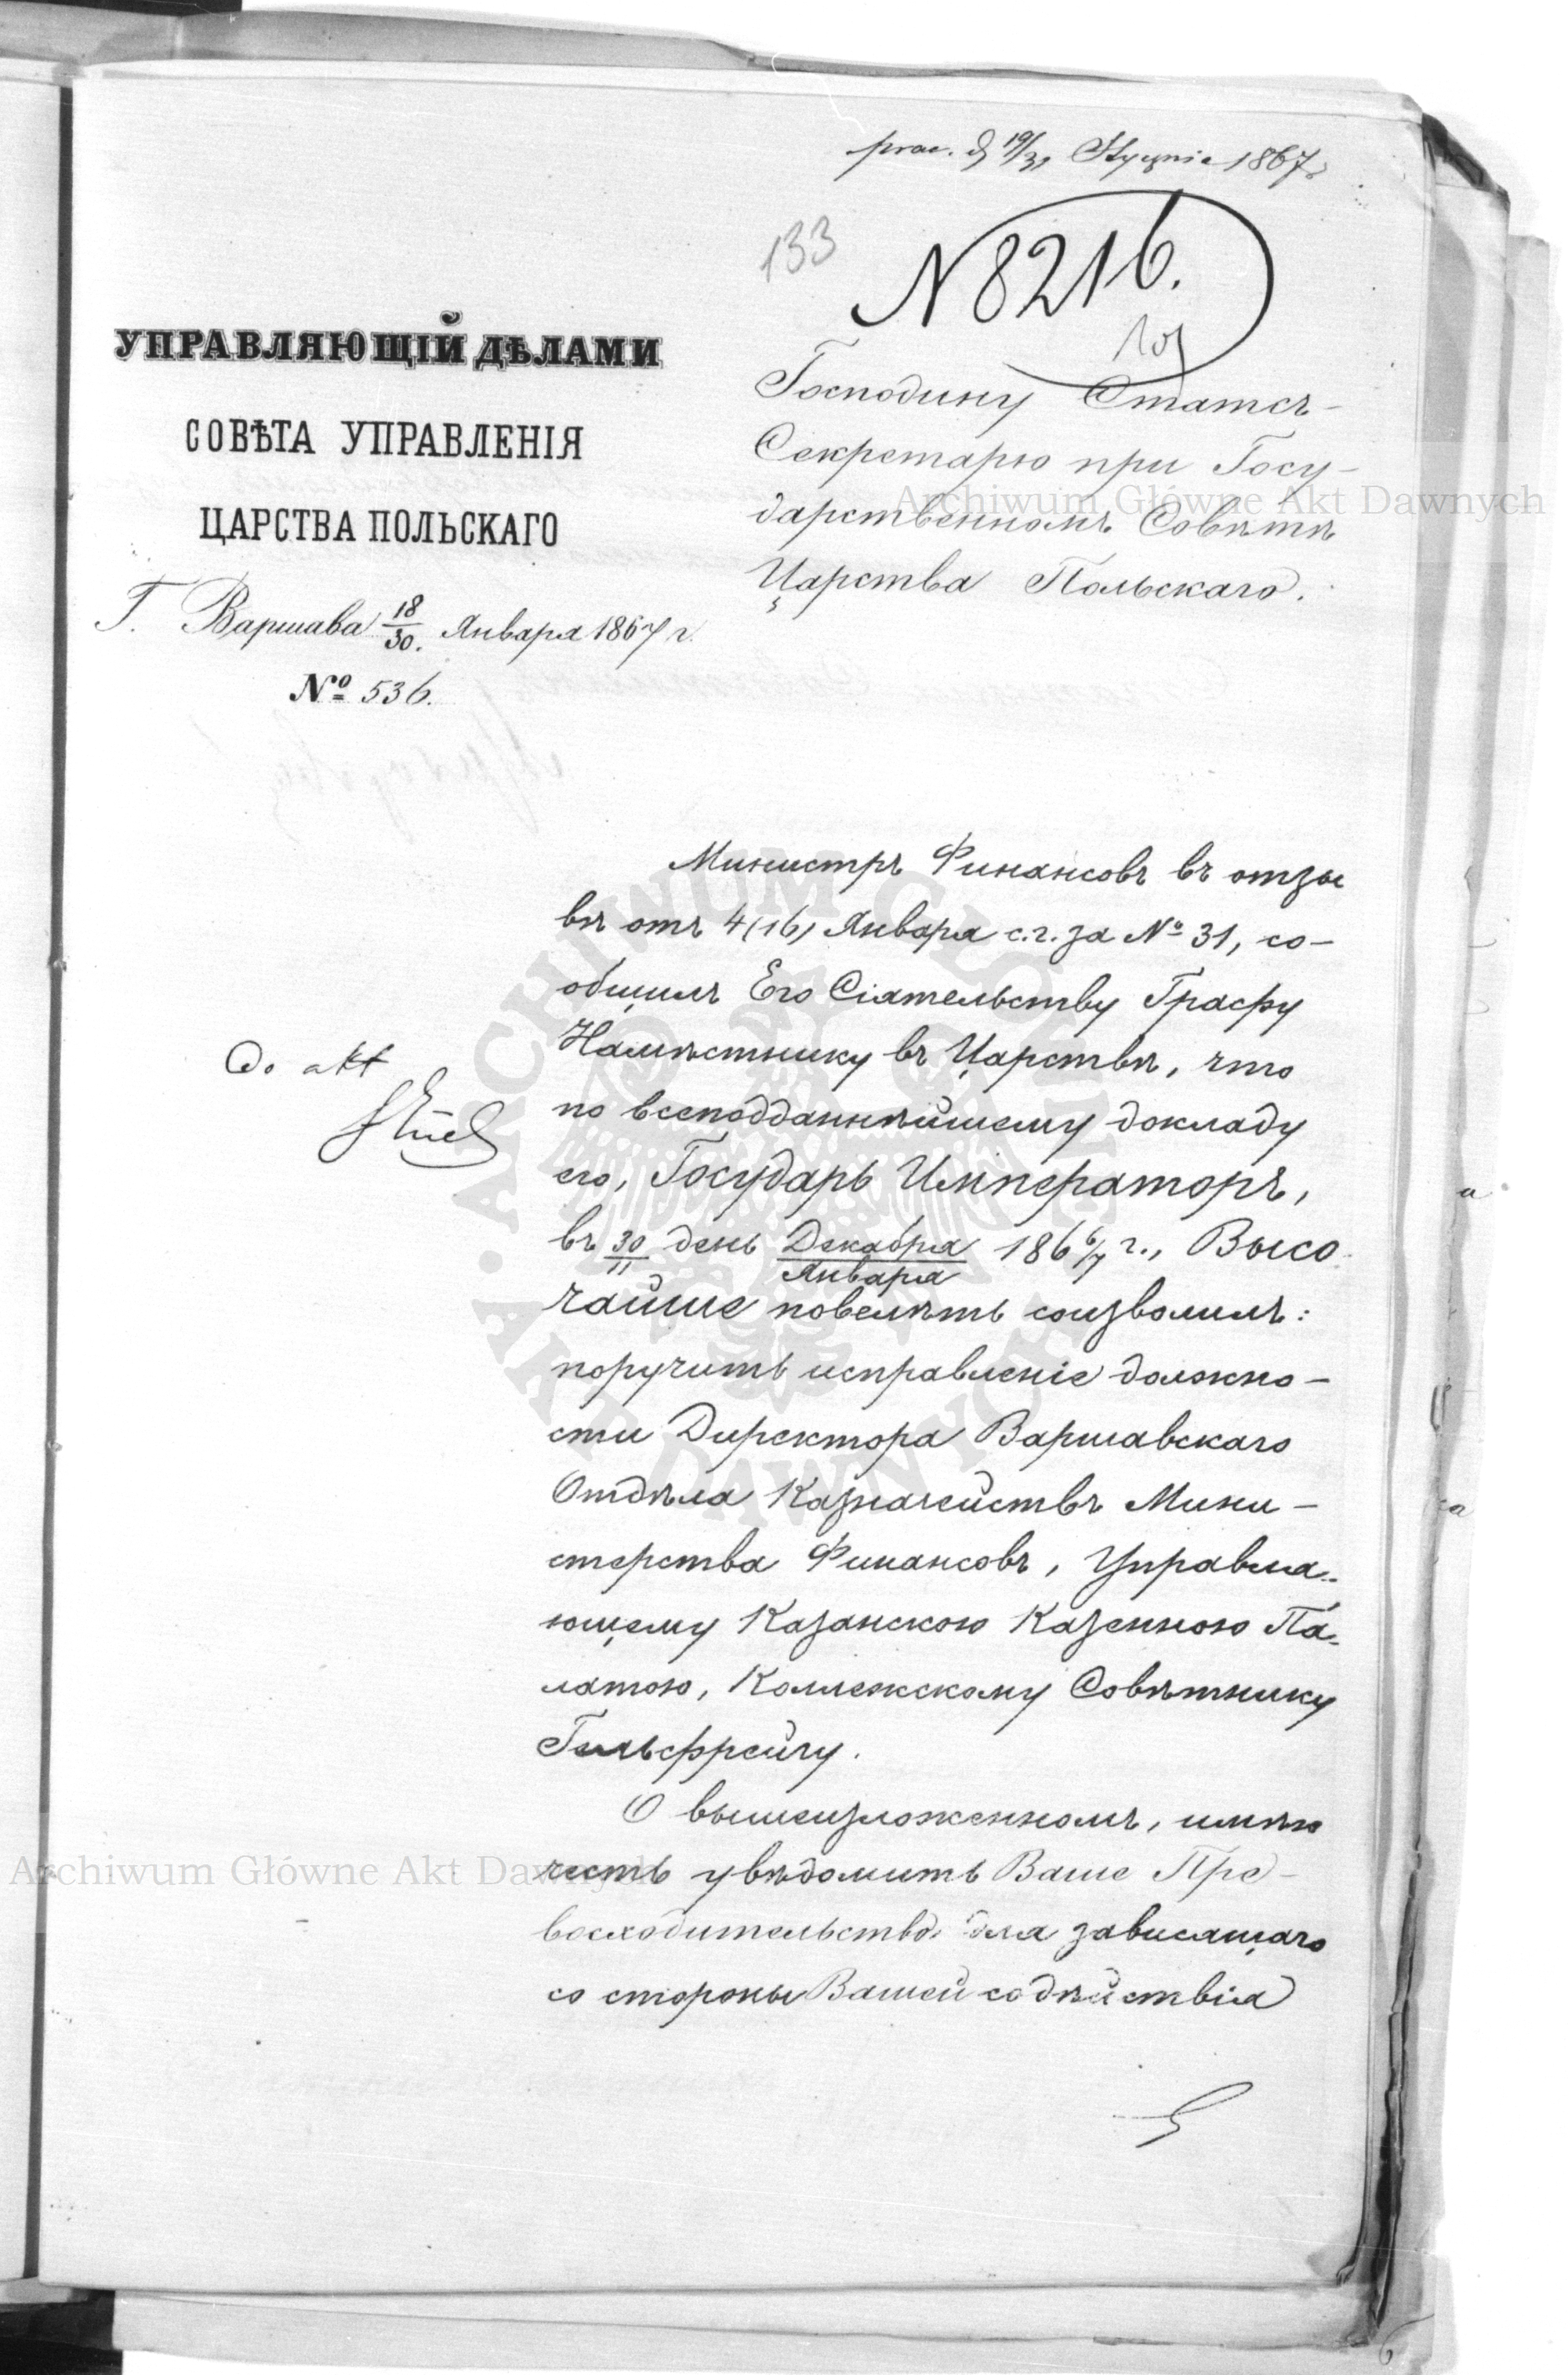 19/31 Stycznia 1867 r.
133
N 8216.
УПРАВЛЯЮЩІЙ ДѢЛАМИ
СОВѢТА УПРАВЛЕНІЯ
ЦАРСТВА ПОЛЬСКАГО
Г. Варшава 18/30. Января 1867 г.
№ 536.
Господину Статсъ-
Секретарю при Госу-
дарственномъ Совѣтѣ
Царства Польскаго.
Archiwum Główne Akt Dawnych
Министръ Финансовъ въ отзы
вѣ отъ 4 (16) Января с.г. за № 31, со-
общилъ Его Сіятельству Графу
Намѣстнику въ Царствѣ, что
по всеподданнѣйшему докладу
его, Государь Императоръ,
въ 30/11 день Декабря/Января 186 6/7 г., Высо-
чайше повелѣть соизволилъ:
поручить исправленіе должно-
сти Директора Варшавскаго
Отдѣла Казначействъ Мини-
стерства Финансовъ, Управля-
ющему Казанскою Казенною Па-
латою, Коллежскому Совѣтнику
Гельфрейху.
Do akt
О вышеизложенномъ, имѣю
честь увѣдомить Ваше Пре-
восходительство для зависящаго
со стороны Вашей содѣйствія
Archiwum Główne Akt Dawnych
ARCHIWUM GŁÓWNE
AKT DAWNYCH